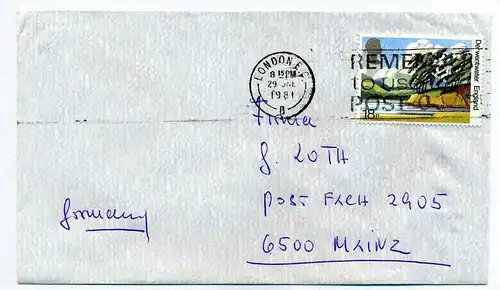 LONDON E.1
8 15 PM
29 JNE
1981
B
REMEMBER
TO USE
POST
Derwentwater England
18p
Firma
G. ROTH
POST FACH 2905
6500 MAINZ
Germany